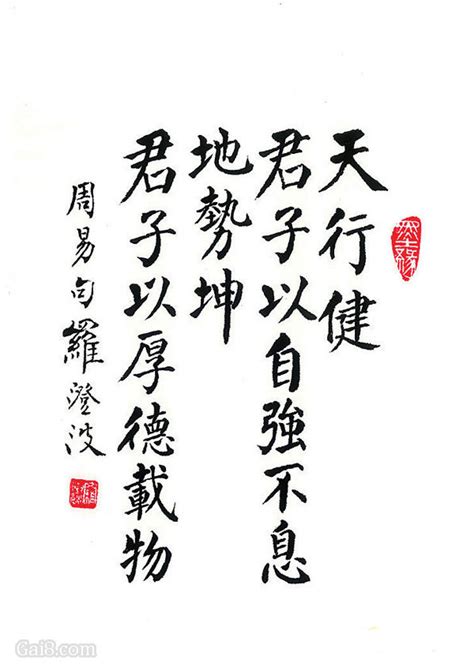 天行健
君子以自強不息
地勢坤
君子以厚德載物
周易句羅澄波
Gai8.com